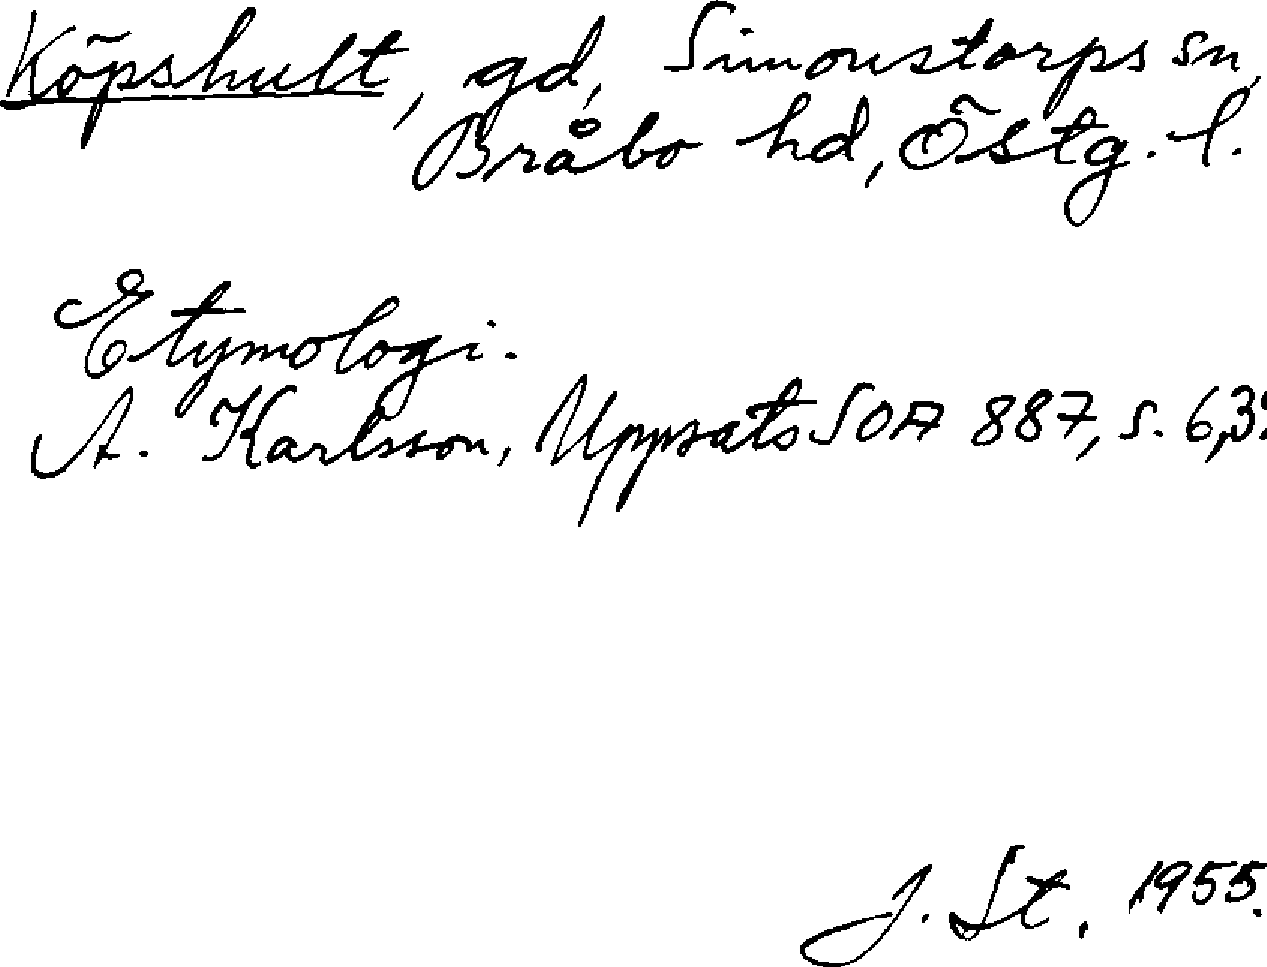 Köpshult, gd, Simonstorps sn,
Bråbo hd, Östg. l.
Etymologi.
A. Karlsson, Uppsats SOA 887, s. 6,3
J. St. 1955.